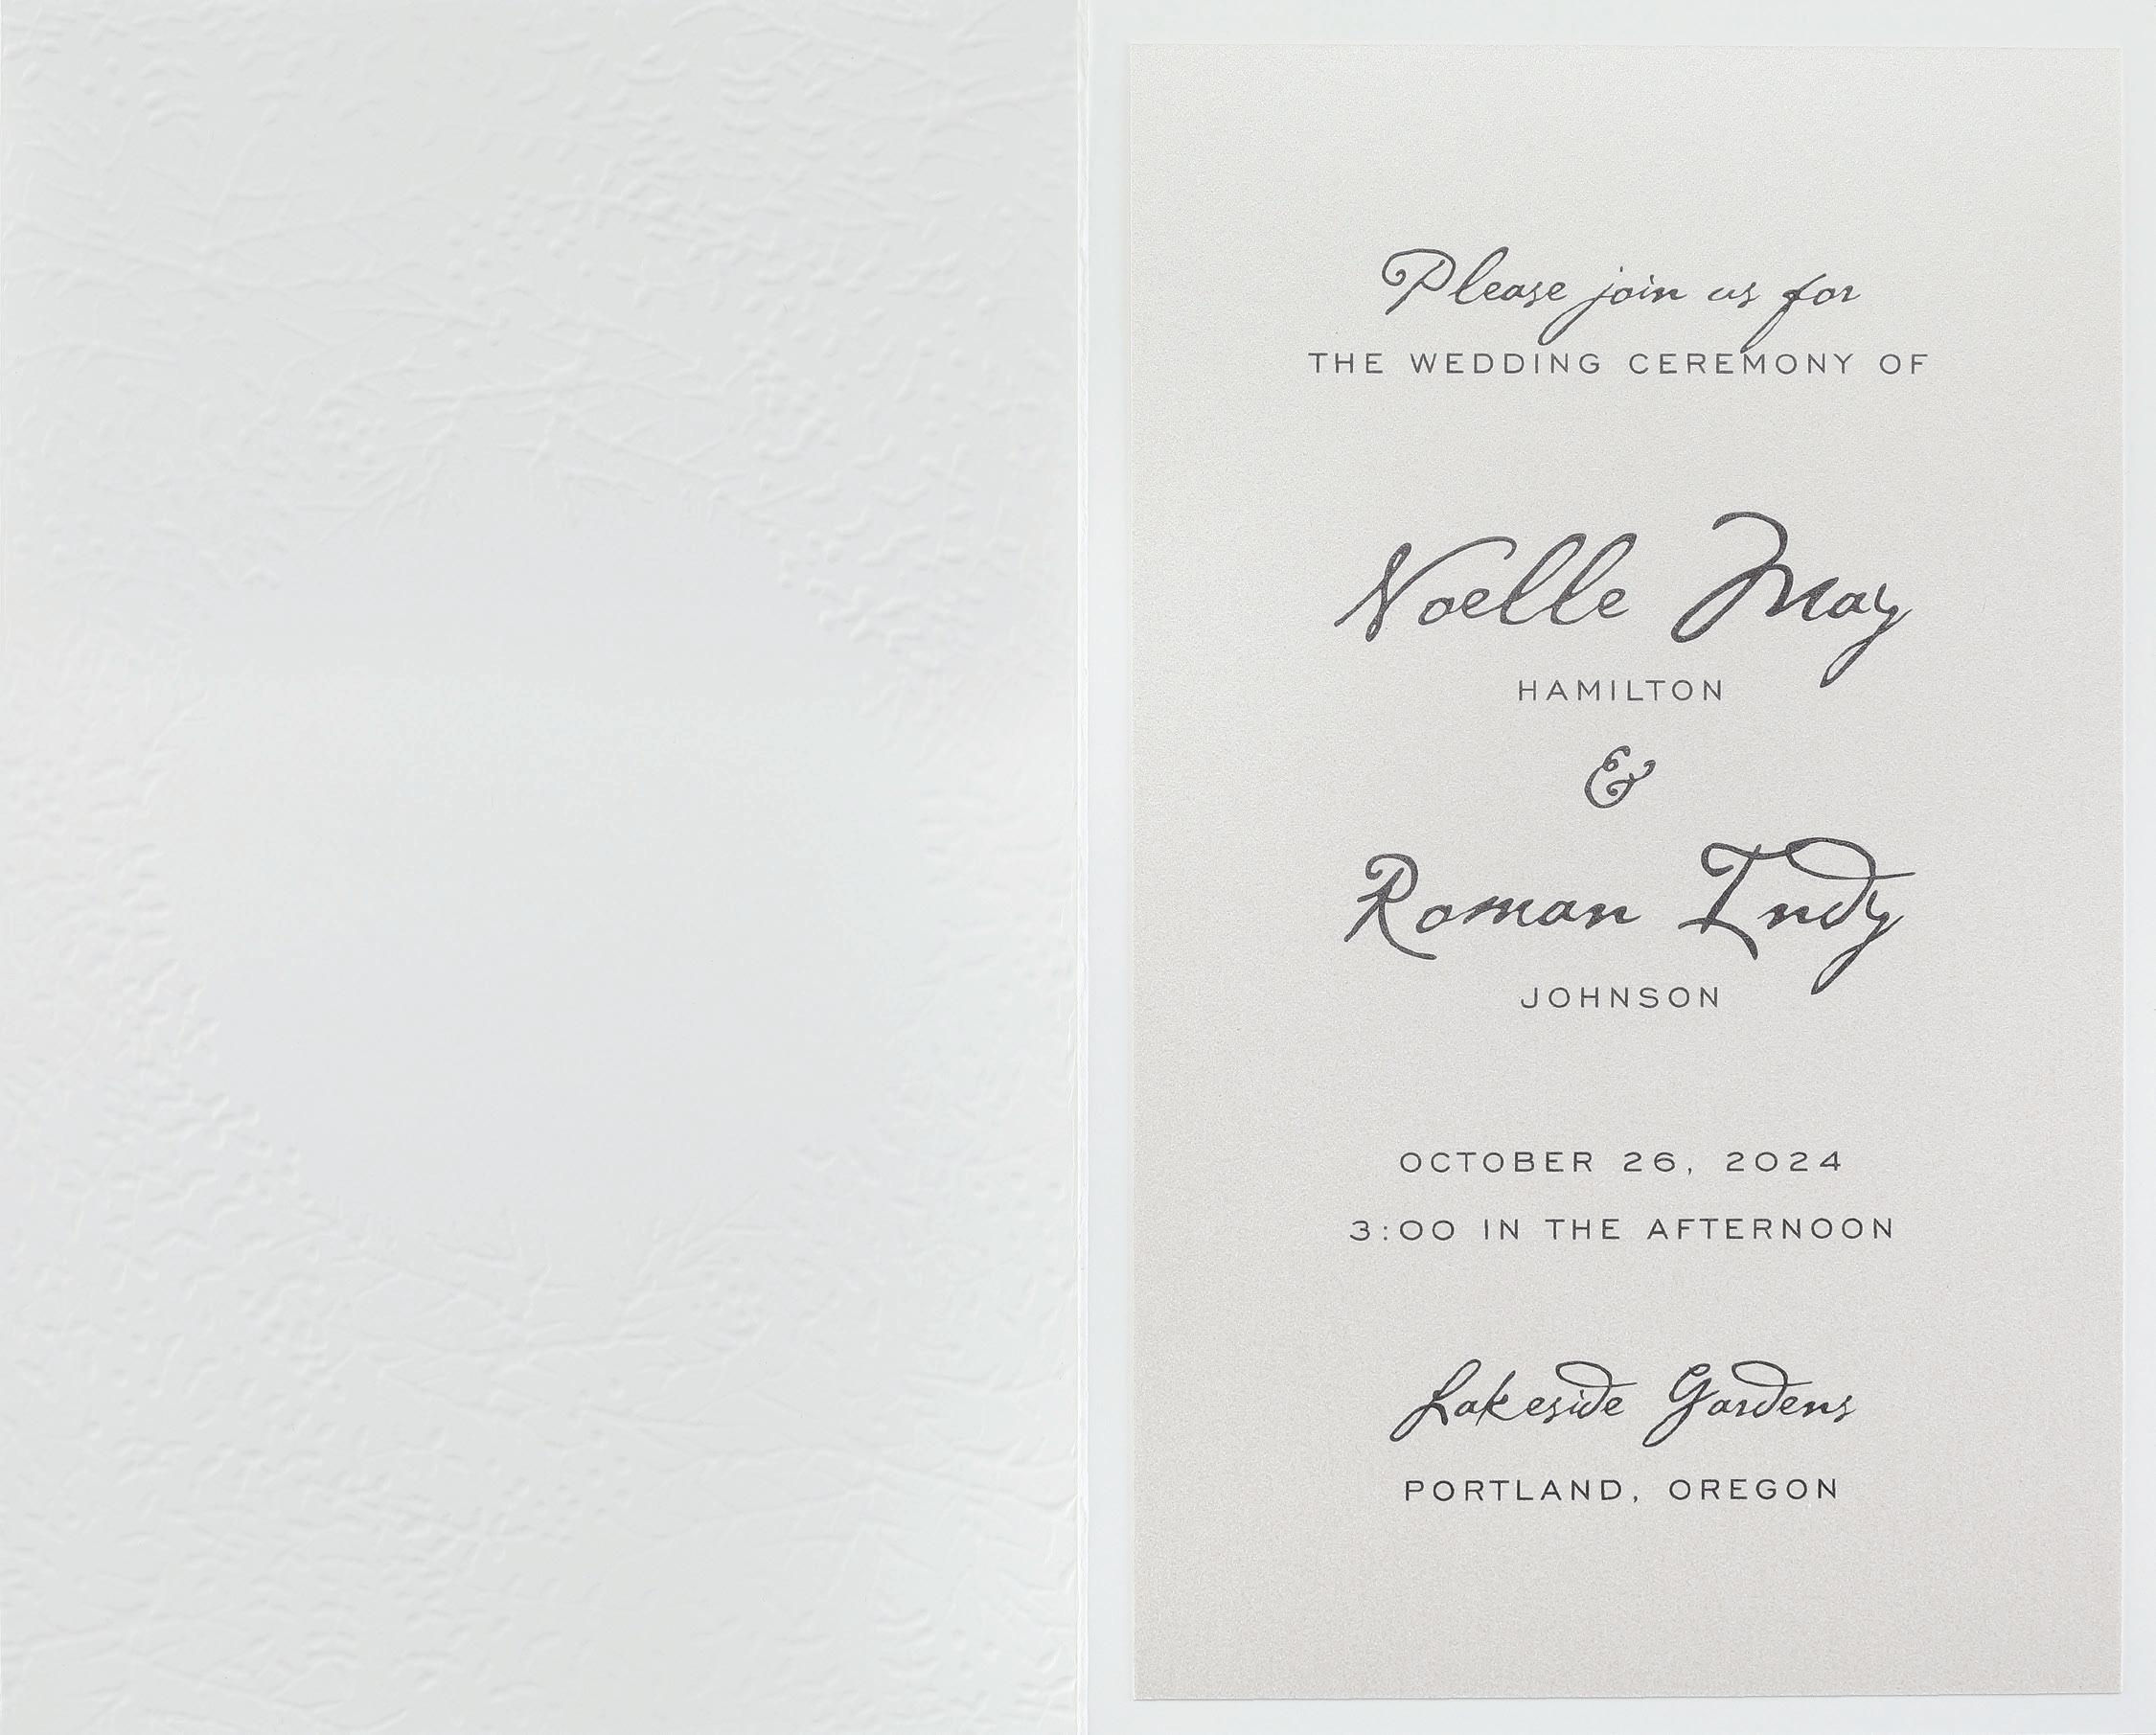 Please join us for
THE WEDDING CEREMONY OF
Noelle May
HAMILTON
&
Roman Indy
JOHNSON
OCTOBER 26, 2024
3:00 IN THE AFTERNOON
Lakeside Gardens
PORTLAND, OREGON